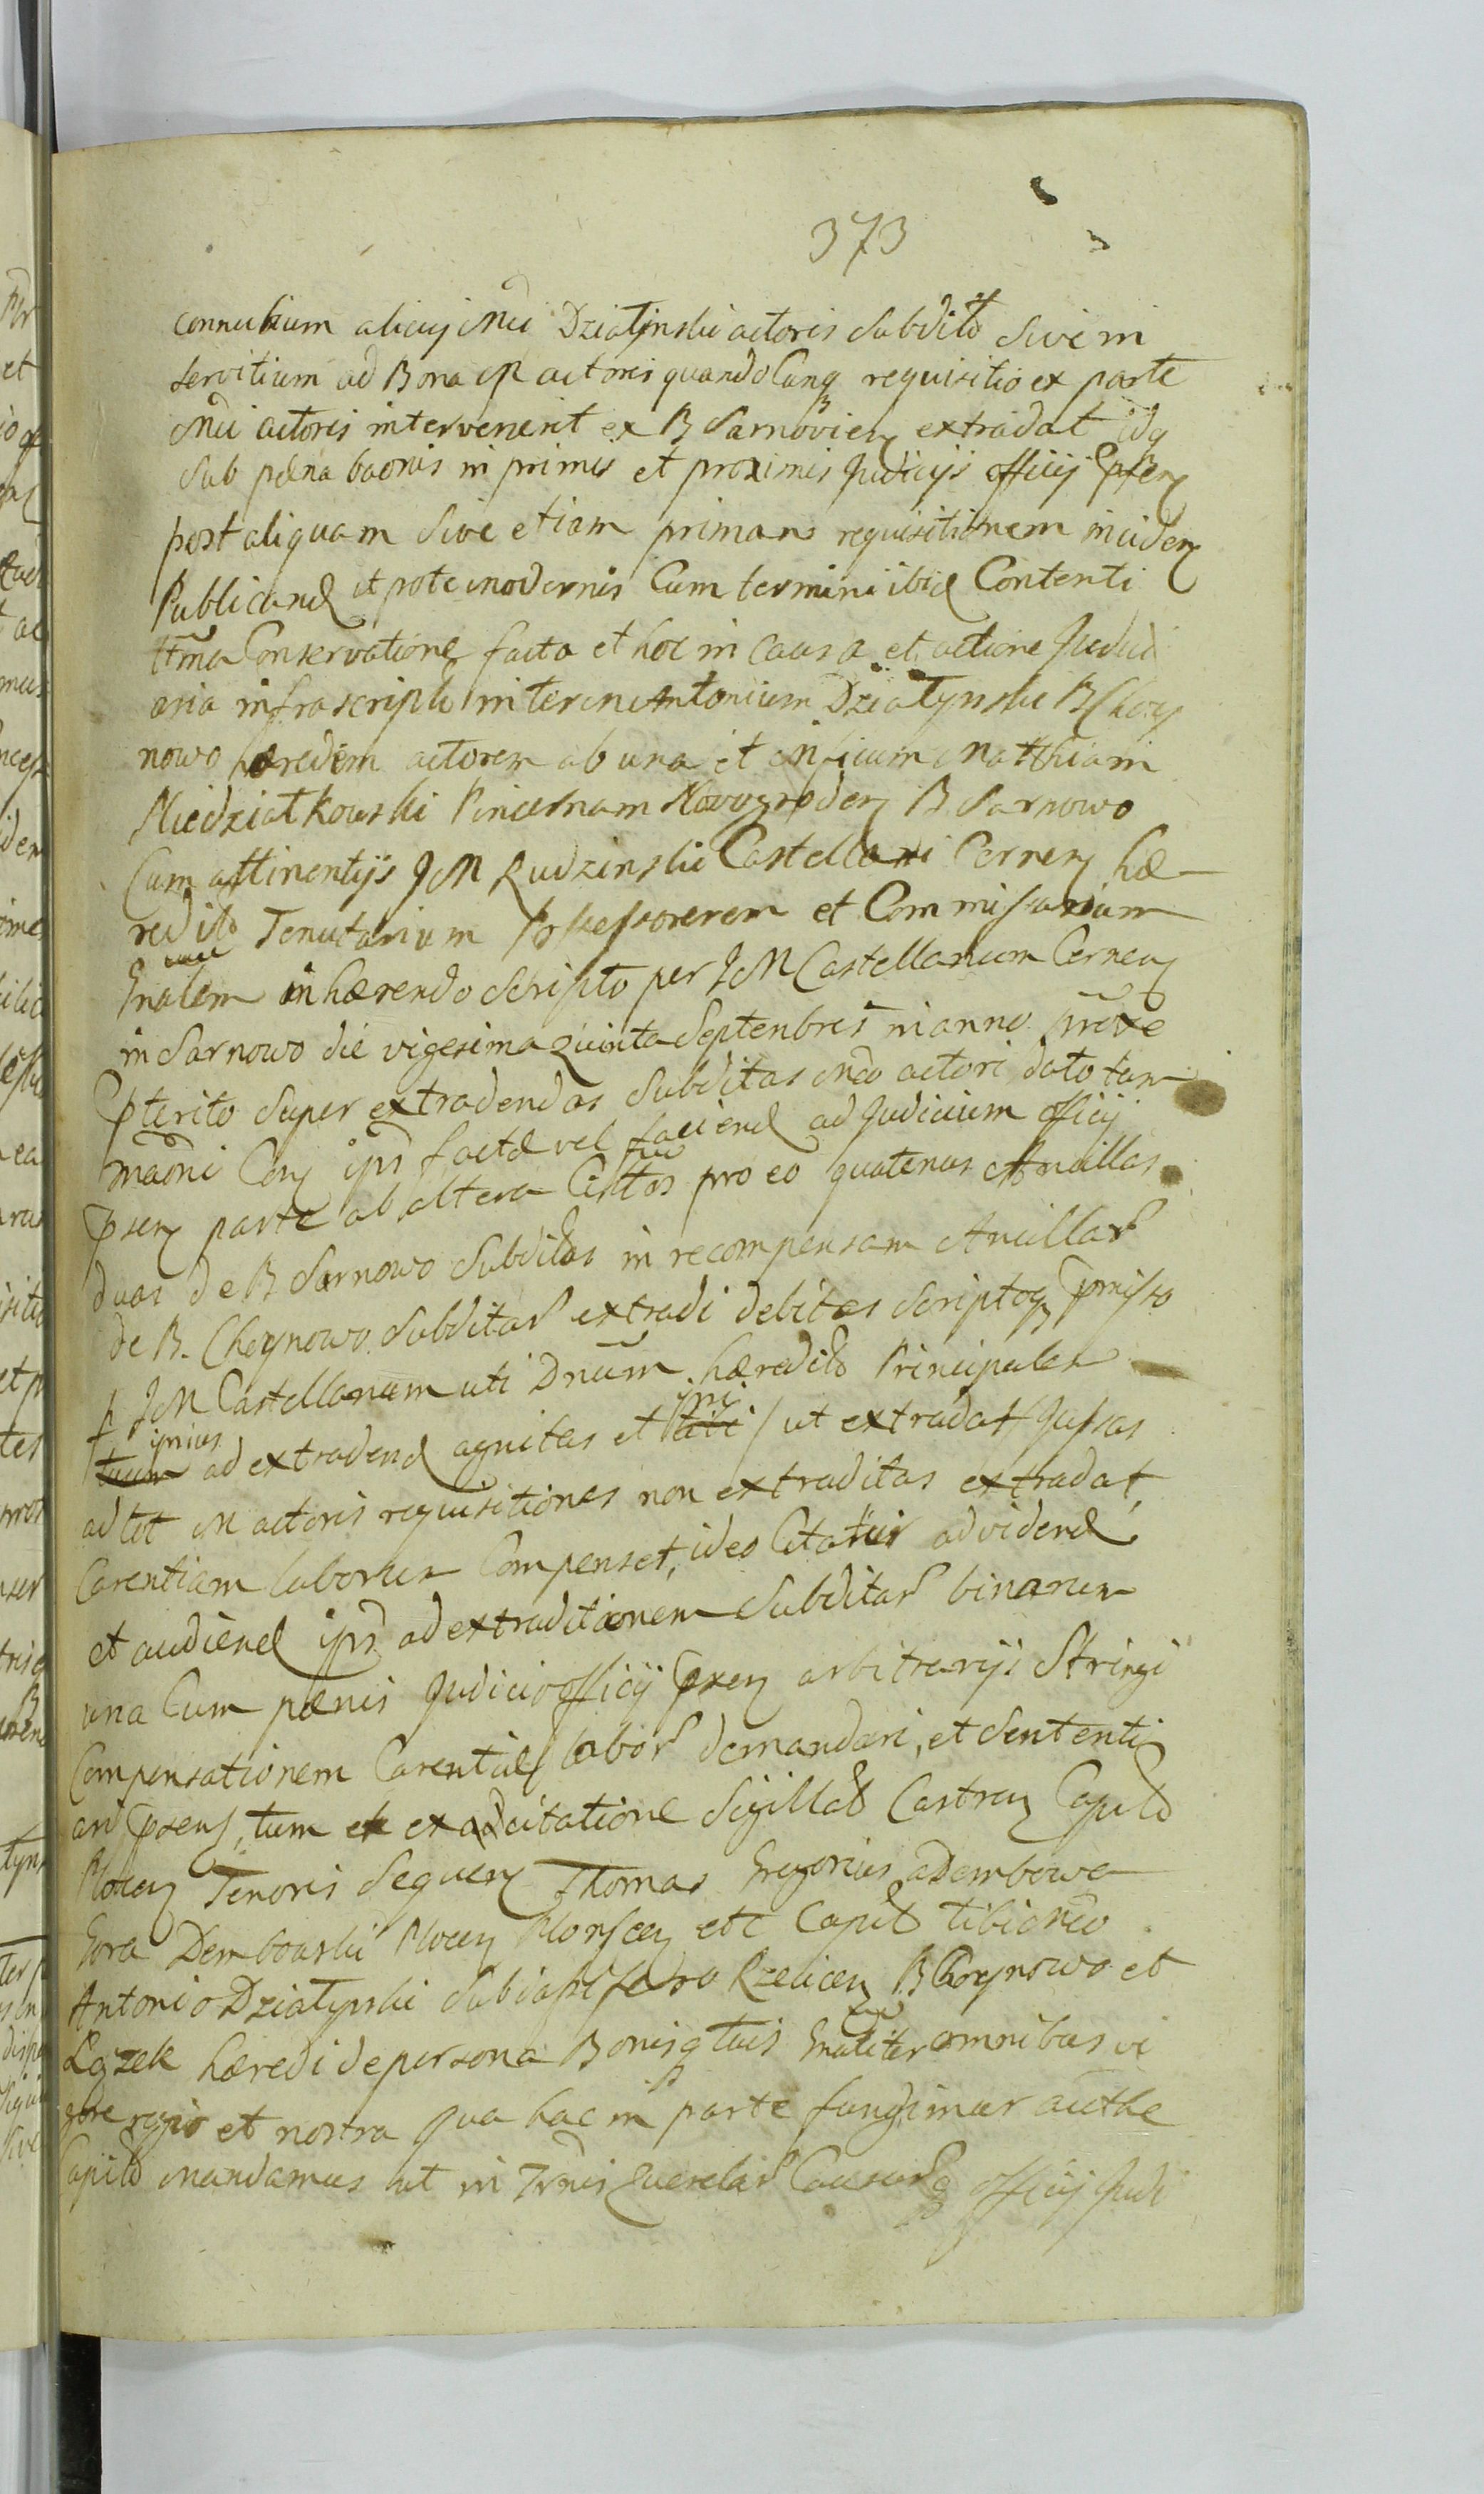 373
connubium alicuj Mci Działynski actoris subdito sive in
servitium ad Bona M actoris quandoCunq requisitio ex parte
Mci actoris intervenerit ex B Sarnovien extradat idq
sub pæna baonis in primis et proximis Judicijs officij Psen
post aliquam sive etiam primam requisitionem inciden
Publicand utpote modernis Cum termini ibid Contenti
ttma Conservatione facta et hoc in Causa et actione Judici
aria infrascripto inter M Antonium Działynski B Choy
nowo hæredem actorem ab una et Mficum Matthiam
Niedziałkowski Pincernam Novogroden B Sarnowo
Cum attinentijs J M Rudzinski Castellani Cernen hæ
redit Tenutarium Possessorerem et Commissarium
Gnalem inhærendo scripto per J M Castellanum Cernen
in Sarnowo die vigesima quinta Septenbris in anno proxe
Pterito super extradendas subditas Mco actori dato tum
maoni Con ips factæ vel faciend ad Judicium officij
Psen parte ab altera Cittos pro eo quatenus Ancillas
duas de B Sarnowo subditas in recompensam Ancillar
de B. Choynowo subditar extradi debitas scriptoq Pmisso
p J M Castellanum uti Dnum hæredit Principalem
tuum ipsius ad extradend agnitas et tibi ipsi / ut extradat / Jussas
ad tot M actoris requisitiones non extraditas extradat,
Carentiam laborum Compenset, ideo Citatur ad vidend
et audiend ips ad extraditionem subditar binarum
una Cum pænis Judicio officij Psen arbitrarijs Stringi
Compensationem Carentiæ labor demandari, et sententi
ari Psens, tum et ex adcitatione Sigillat Castren Capit
Plocen Tenoris sequen Thomas Gregorius a Dembowa
Gora Dembowski Plocen Plonscen etc Capit tibi Mco
Antonio Działynski Subdapifero Rzecicen B Choynowo et
Lązek hæredi de persona Bonisq tuis Gnaliter omnibus vi
gore regio et nostra qua hac in parte fungimur authe
Capit mandamus ut in Tnis Querelar Causarq officij Judi